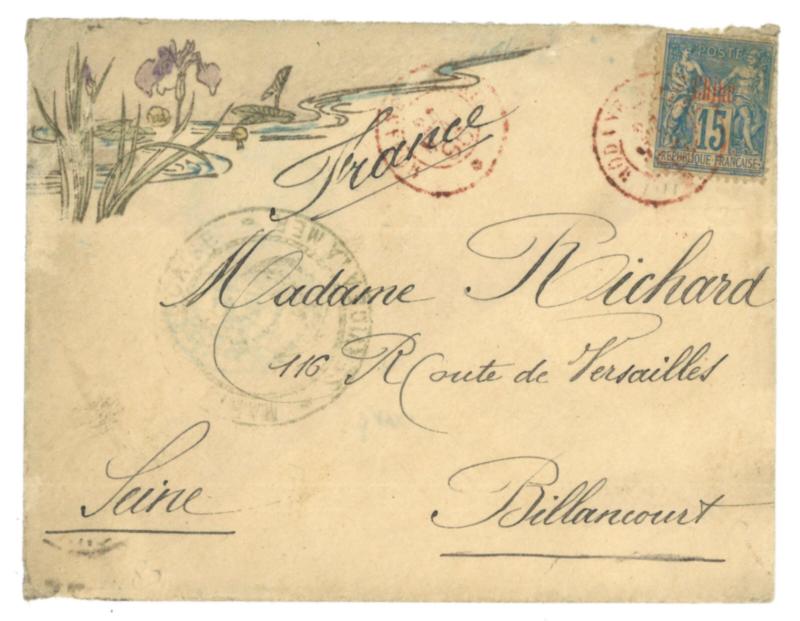 POSTE
Chine
15
REPUBLIQUE FRANÇAISE
France
Madame Richard
116 Route de Versailles
Seine
Billancourt